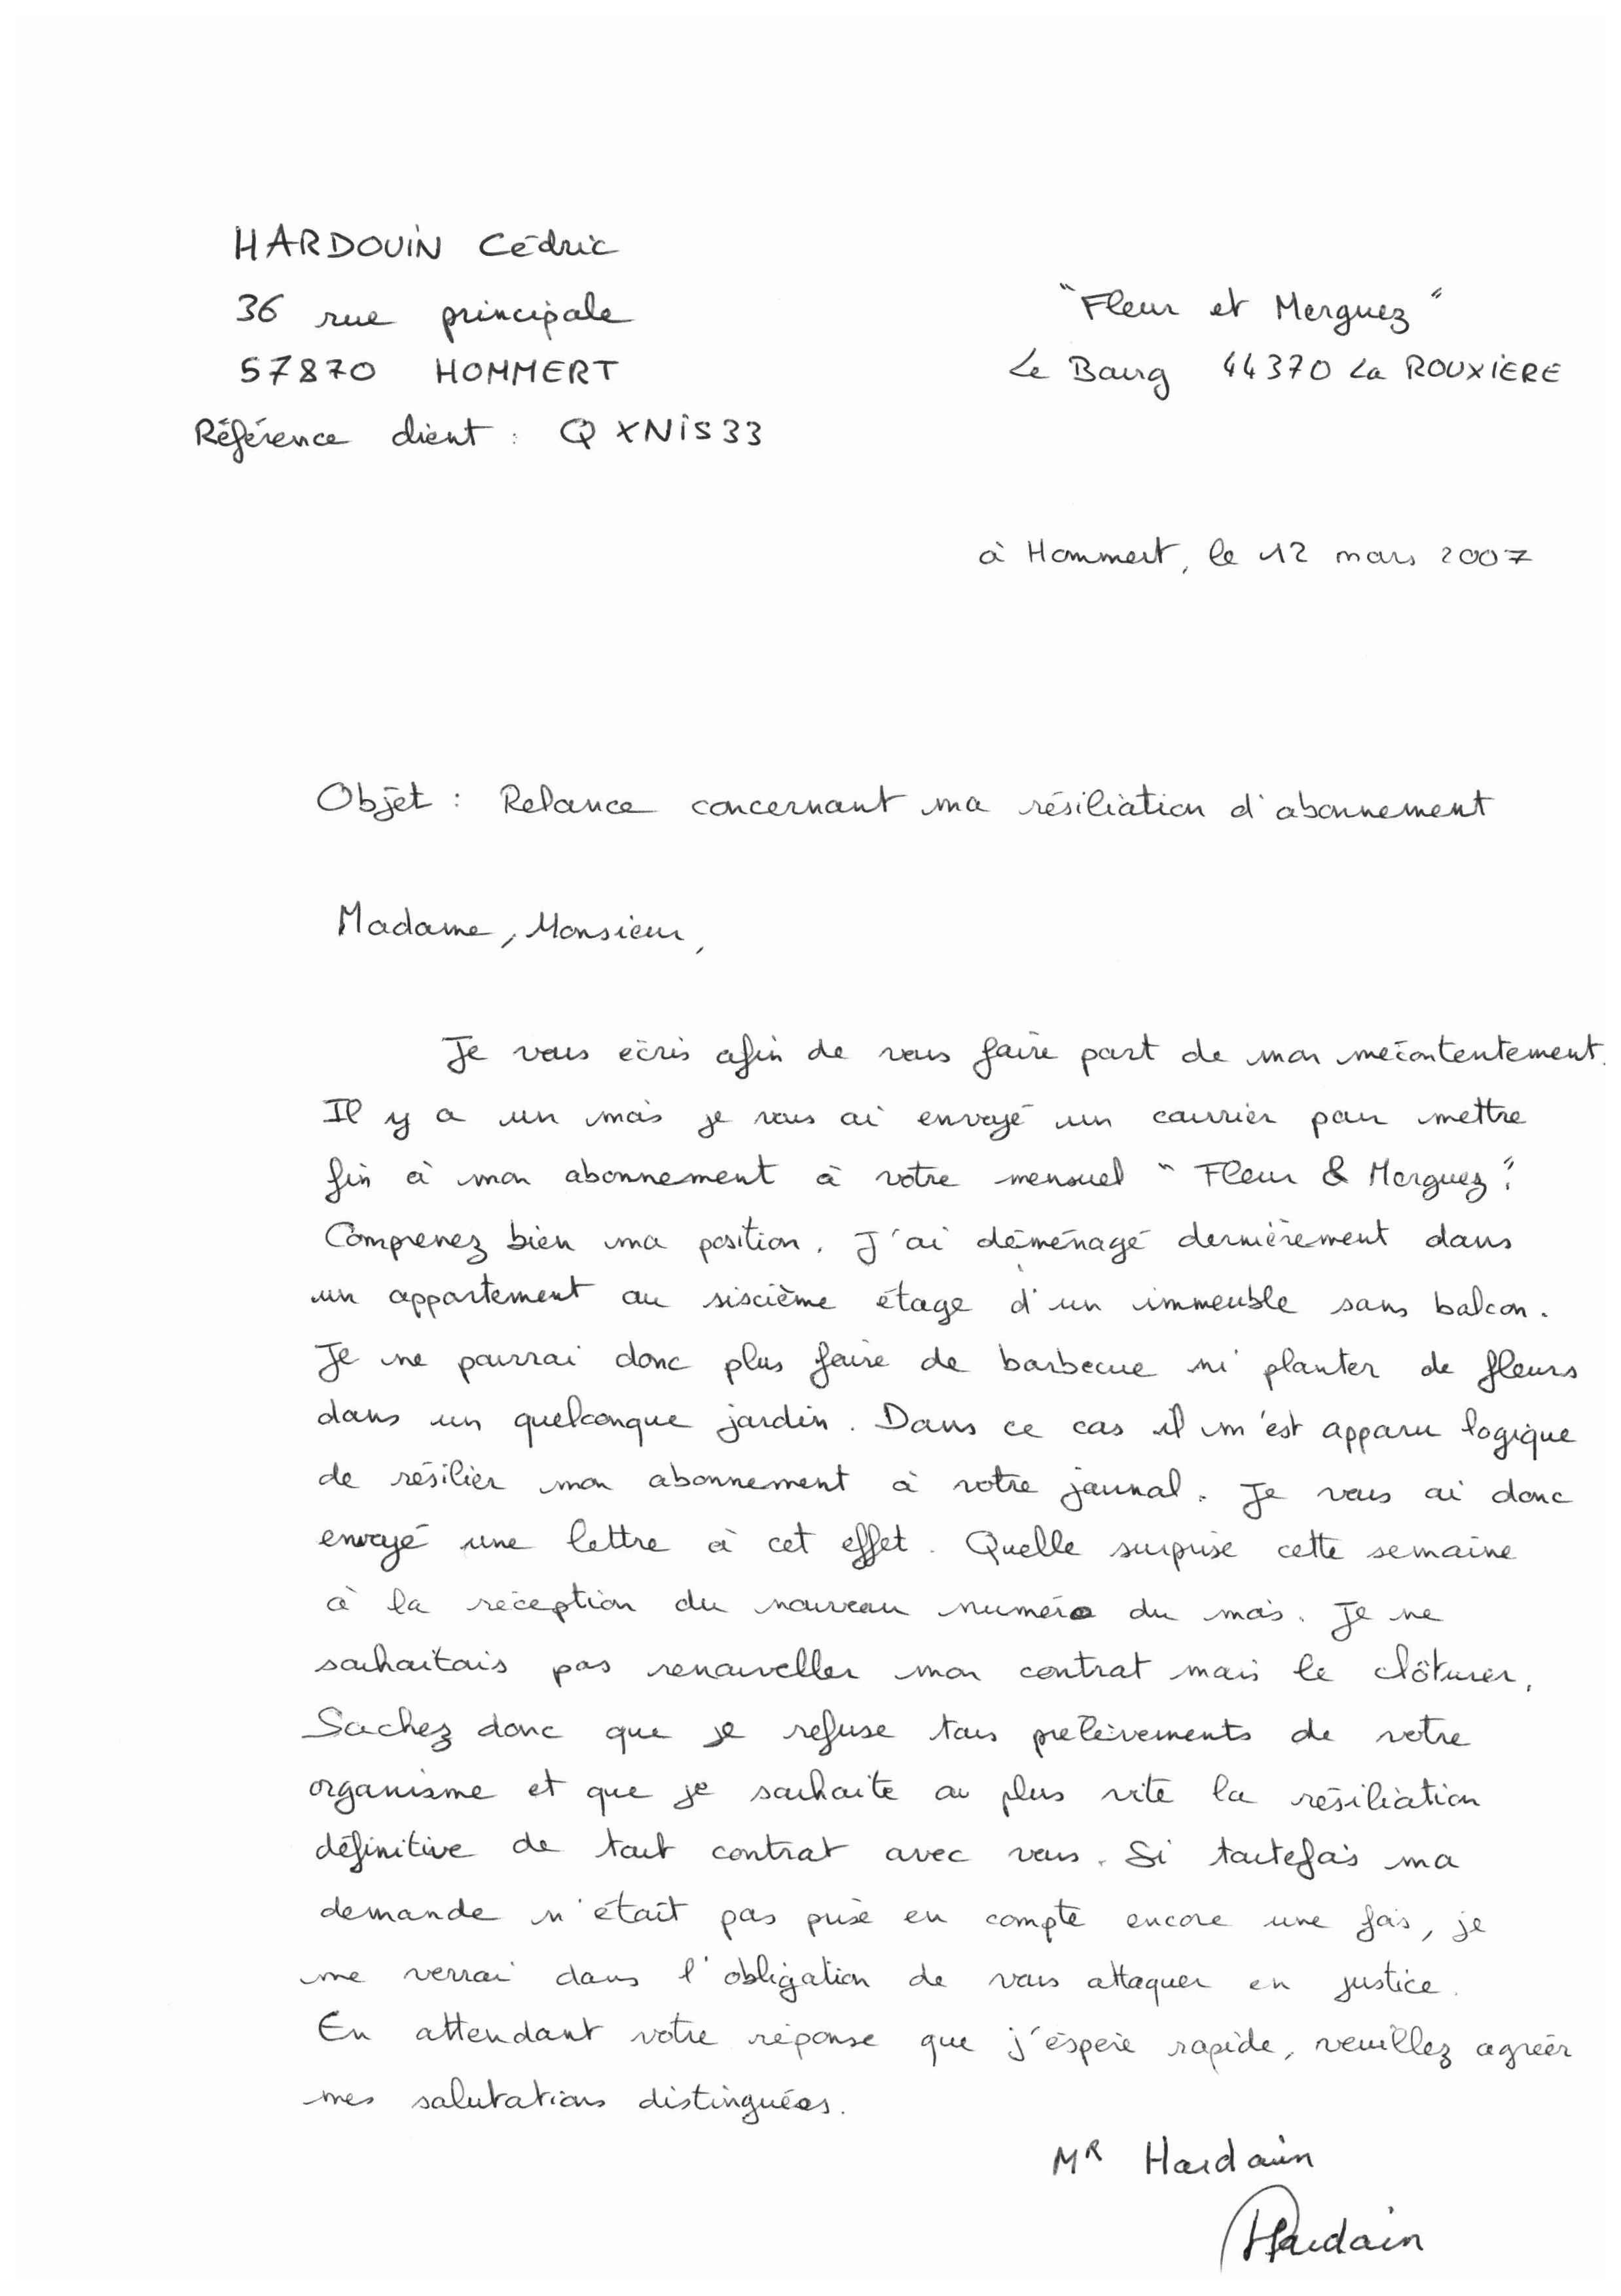 HARDOUIN Cédric
36 rue principale
57870 HOMMERT
Référence client : QXNIS33
"Fleur et Merguez"
Le Bourg 44370 La ROUXIERE
à Hommert, le 12 mars 2007
Objet : Relance concernant ma résiliation d'abonnement
Madame, Monsieur,
Je vous écris afin de vous faire part de mon mécontentement.
Il y a un mois je vous ai envoyé un courrier pour mettre
fin à mon abonnement à votre mensuel "Fleur & Merguez".
Comprenez bien ma position. J'ai déménagé dernièrement dans
un appartement au sixième étage d'un immeuble sans balcon.
Je ne pourrai donc plus faire de barbecue ni planter de fleurs
dans un quelconque jardin. Dans ce cas il m'est apparu logique
de résilier mon abonnement à votre journal. Je vous ai donc
envoyé une lettre à cet effet. Quelle surprise cette semaine
à la réception du nouveau numéro du mois. Je ne
souhaitais pas renouveller mon contrat mais le clôturer.
Sachez donc que je refuse tous prélèvements de votre
organisme et que je souhaite au plus vite la résiliation
définitive de tout contrat avec vous. Si toutefois ma
demande n'était pas prise en compte encore une fois, je
me verrai dans l'obligation de vous attaquer en justice.
En attendant votre réponse que j'éspère rapide, veuillez agréer
mes salutations distinguées.
MR Hardouin
Hardouin